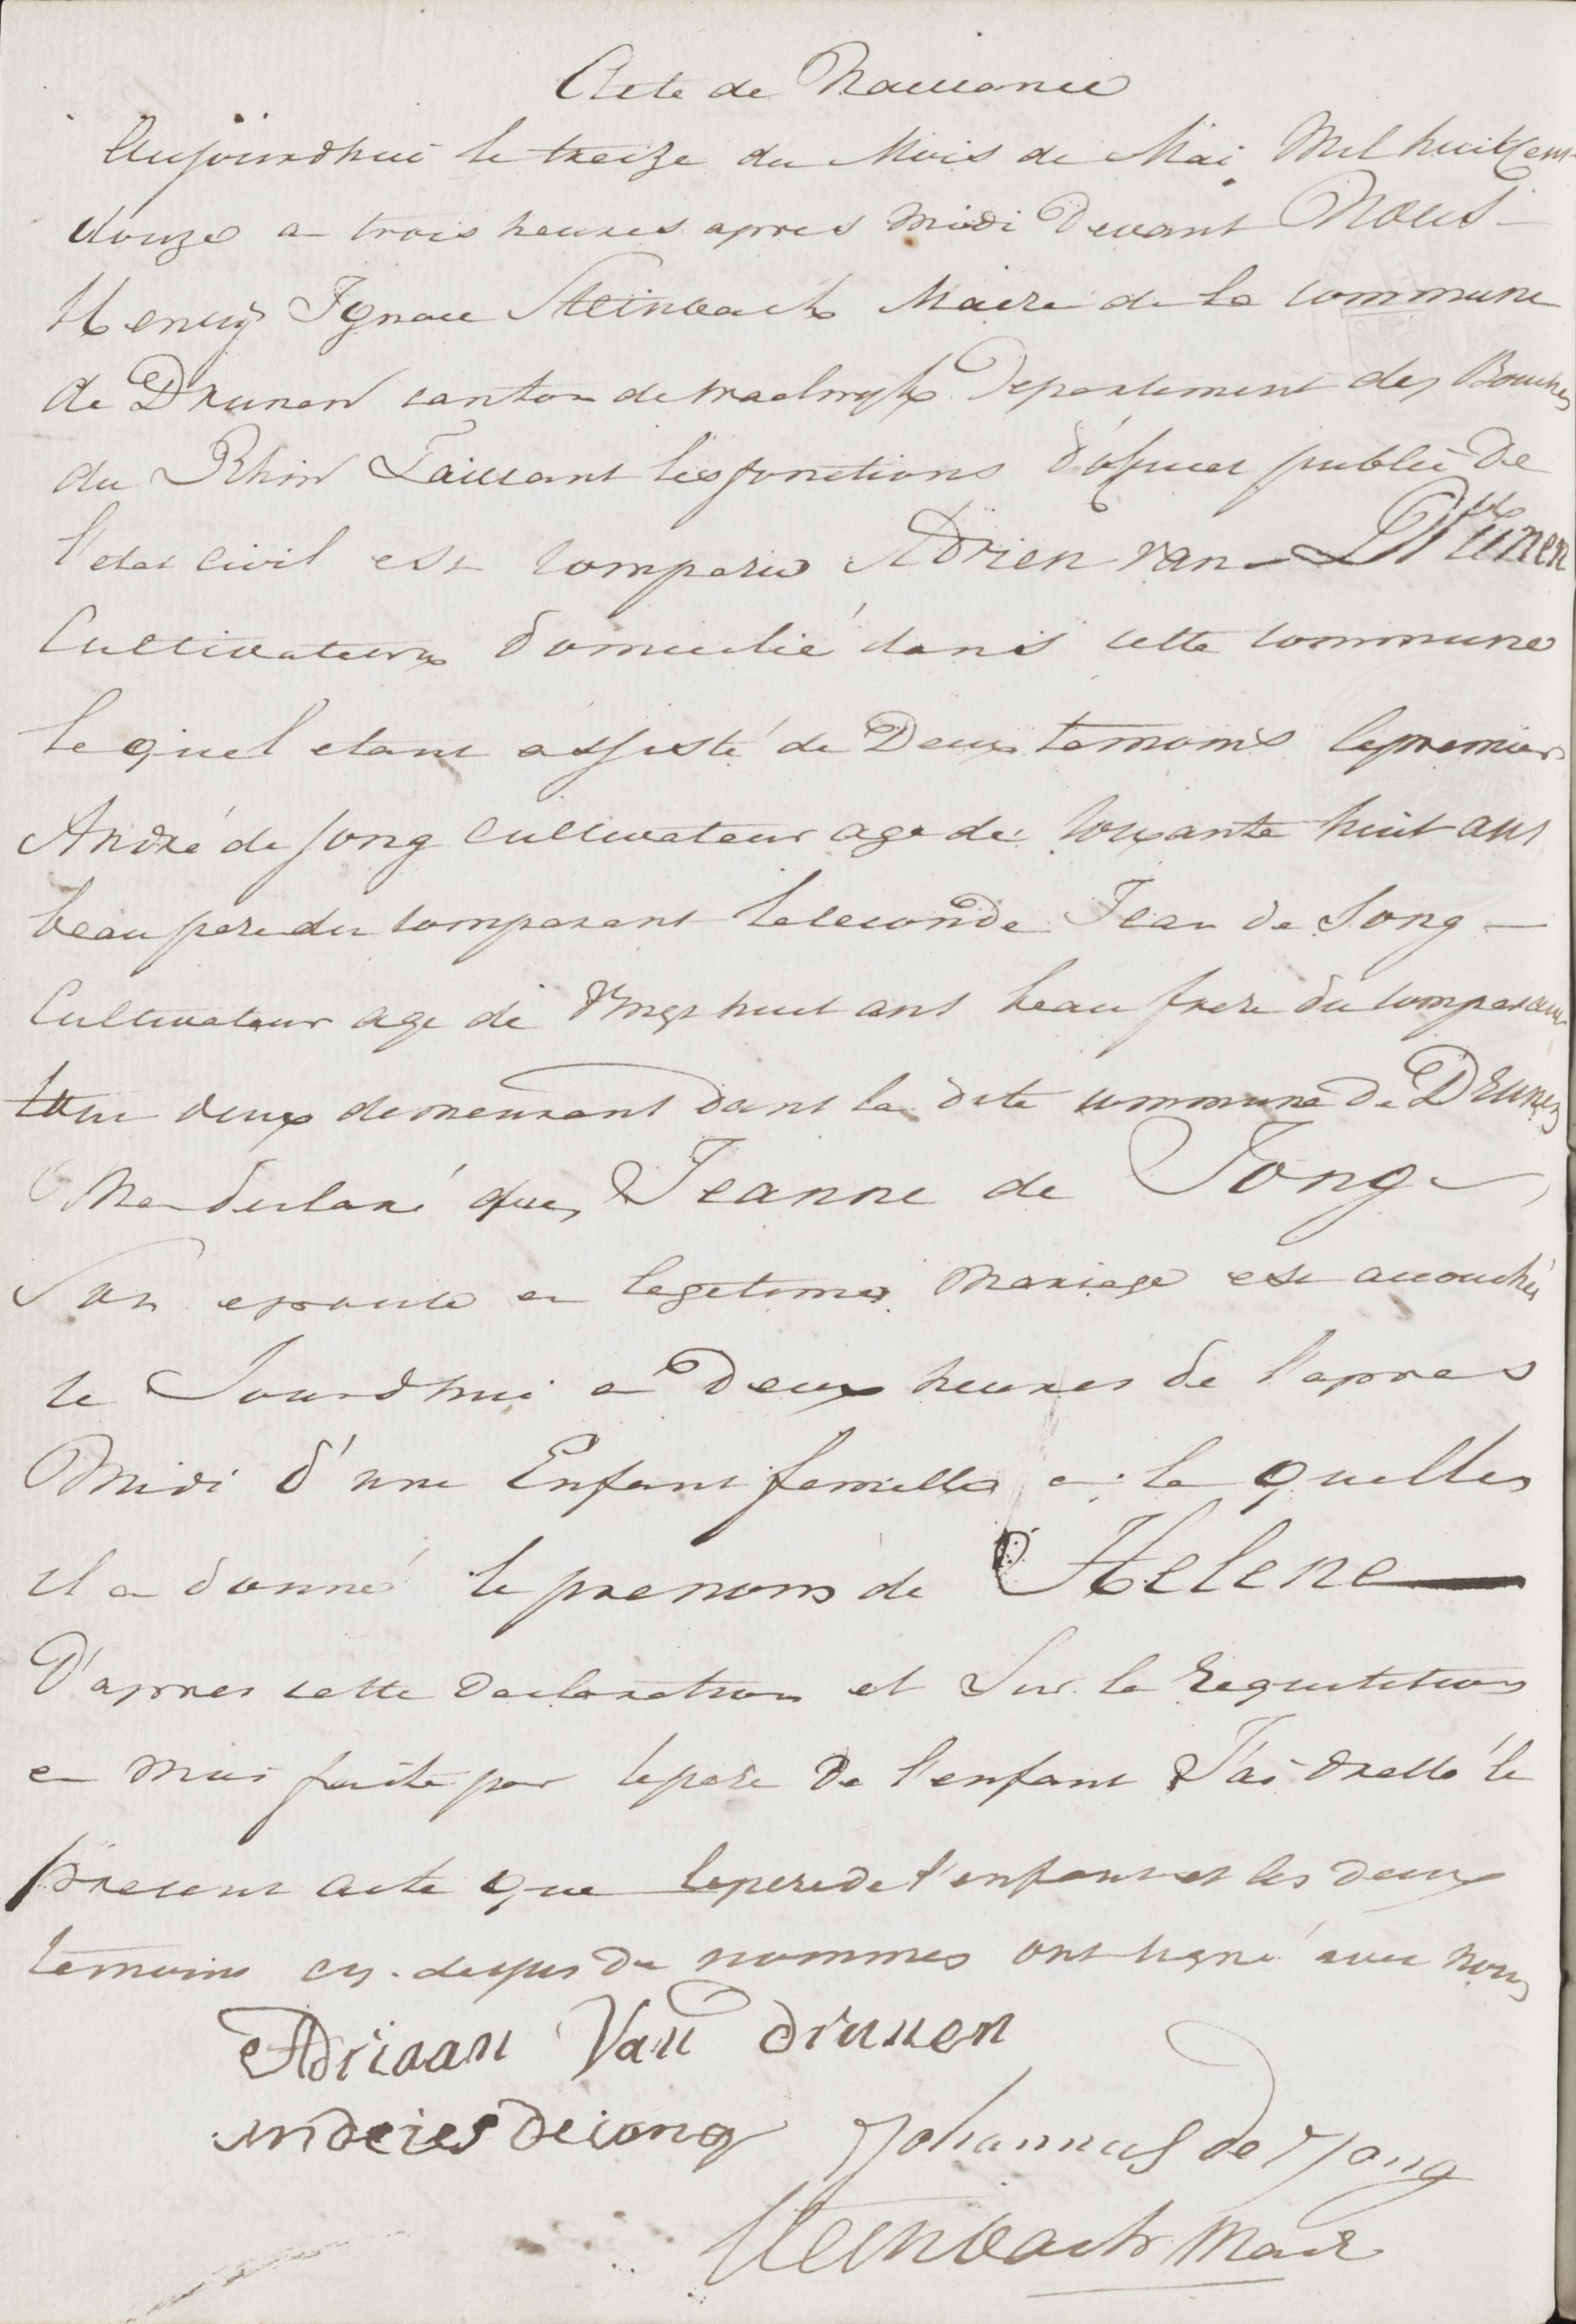 Acte de Naissance
Aujourdhui le treize du Mois de Mai Mil huit Cent
douze a trois heures apres midi Devant Nous
Henry Ignace Steinbach Maire de la commune
de Drunen canton de Waalwyk Departement des Bouches
du Rhin Faissant les fonctions d'oficier public De
l'etat civil est comparu Adrien van Drunen
Cultivateur domicilié dans cette commune
lequel etant assisté de Deux temoins le premier
André de Jong cultivateur age de soixante huit ans
beau pere du comparant le seconde Jean de Jong
Cultivateur age de vingt huit ans beau frere du comparant
tous deux demeurant dans la dite commune de Drunen
Ma declaré que Jeanne de Jong
Son epouse en legetime Mariage est accouchée
ce Jourdhui a Deux heures de l'apres
Midi d'une Enfant femelle a la quelles
il a donné le prenom de Helene
D'apres cette Declaration et Sur la requisition
a moi faite par le pere De l'enfant J'ai dressé le
present acte que le pere de l'enfant et les deux
temoins cy-dessus de nommes ont signé avec nous
Adriaan Van drunen
andries de iong Johannus de Jong
Steinbach Maire